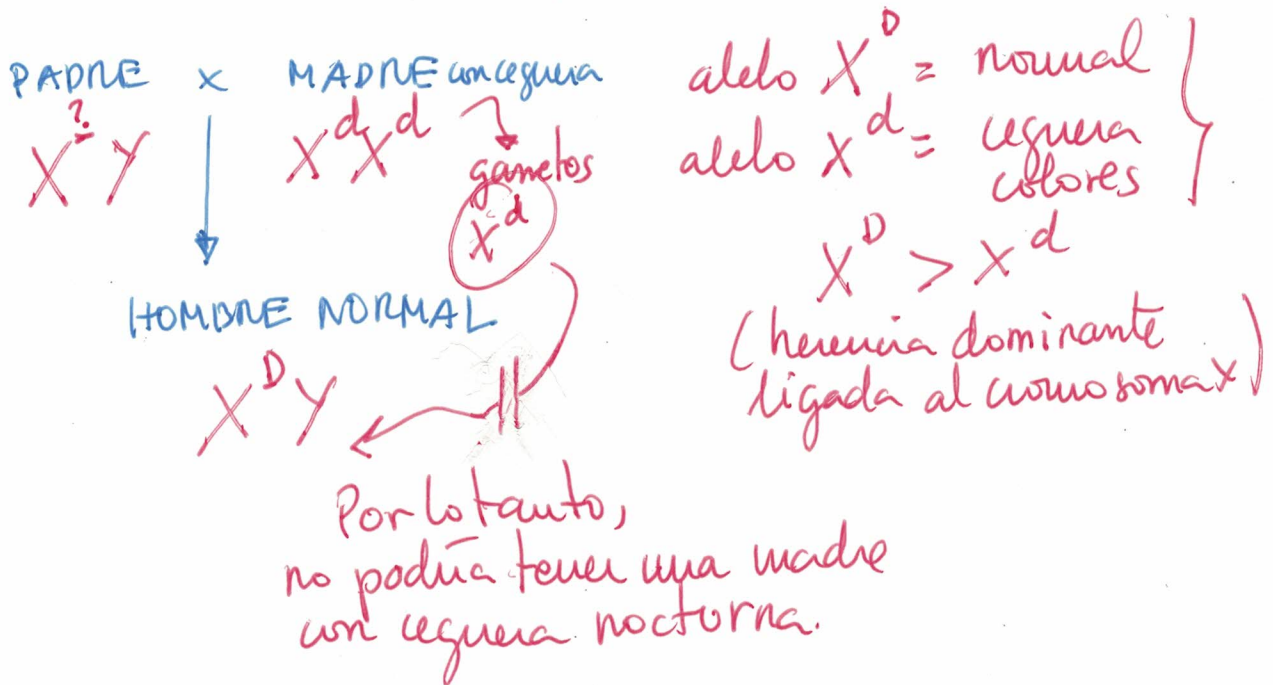 PADRE x MADRE con ceguera
X^? Y
X^d X^d
gametos
X^d
HOMBRE NORMAL
X^D Y
Por lo tanto,
no podría tener una madre
con ceguera nocturna.
alelo X^D = normal
alelo X^d = ceguera
colores
X^D > X^d
(herencia dominante
ligada al cromosoma X)